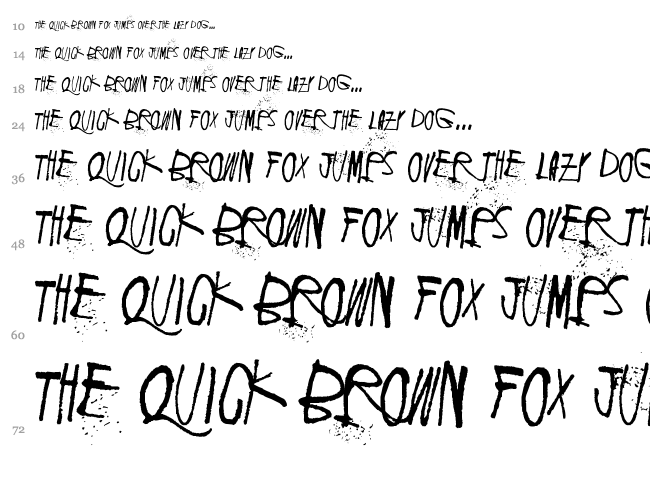 10 THE QUICK BROWN FOX JUMPS OVER THE LAZY DOG...
14 THE QUICK BROWN FOX JUMPS OVER THE LAZY DOG...
18 THE QUICK BROWN FOX JUMPS OVER THE LAZY DOG...
24 THE QUICK BROWN FOX JUMPS OVER THE LAZY DOG...
36 THE QUICK BROWN FOX JUMPS OVER THE LAZY DOG
48 THE QUICK BROWN FOX JUMPS OVER TH
60 THE QUICK BROWN FOX JUMPS
72 THE QUICK BROWN FOX JU